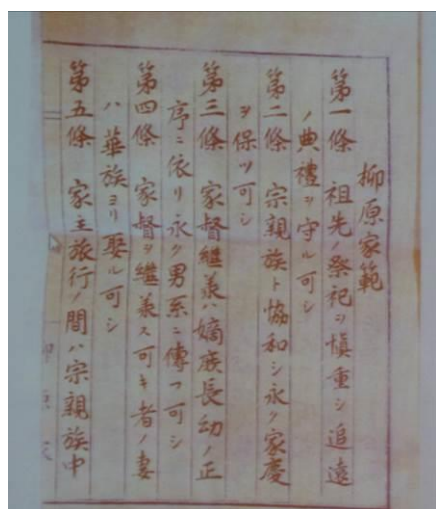 柳原家範
第一條 祖先ノ祭祀ヲ慎重シ追遠
ノ典禮ヲ守ル可シ
第二條 宗親族ト協和シ永ク家慶
ヲ保ツ可シ
第三條 家督継義ハ嫡庶長幼ノ正
序ニ依リ永ク男系ニ傳フ可シ
第四條 家督ヲ継義ス可キ者ノ妻
ハ華族ヨリ娶ル可シ
第五條 家主旅行ノ間ハ宗親族中